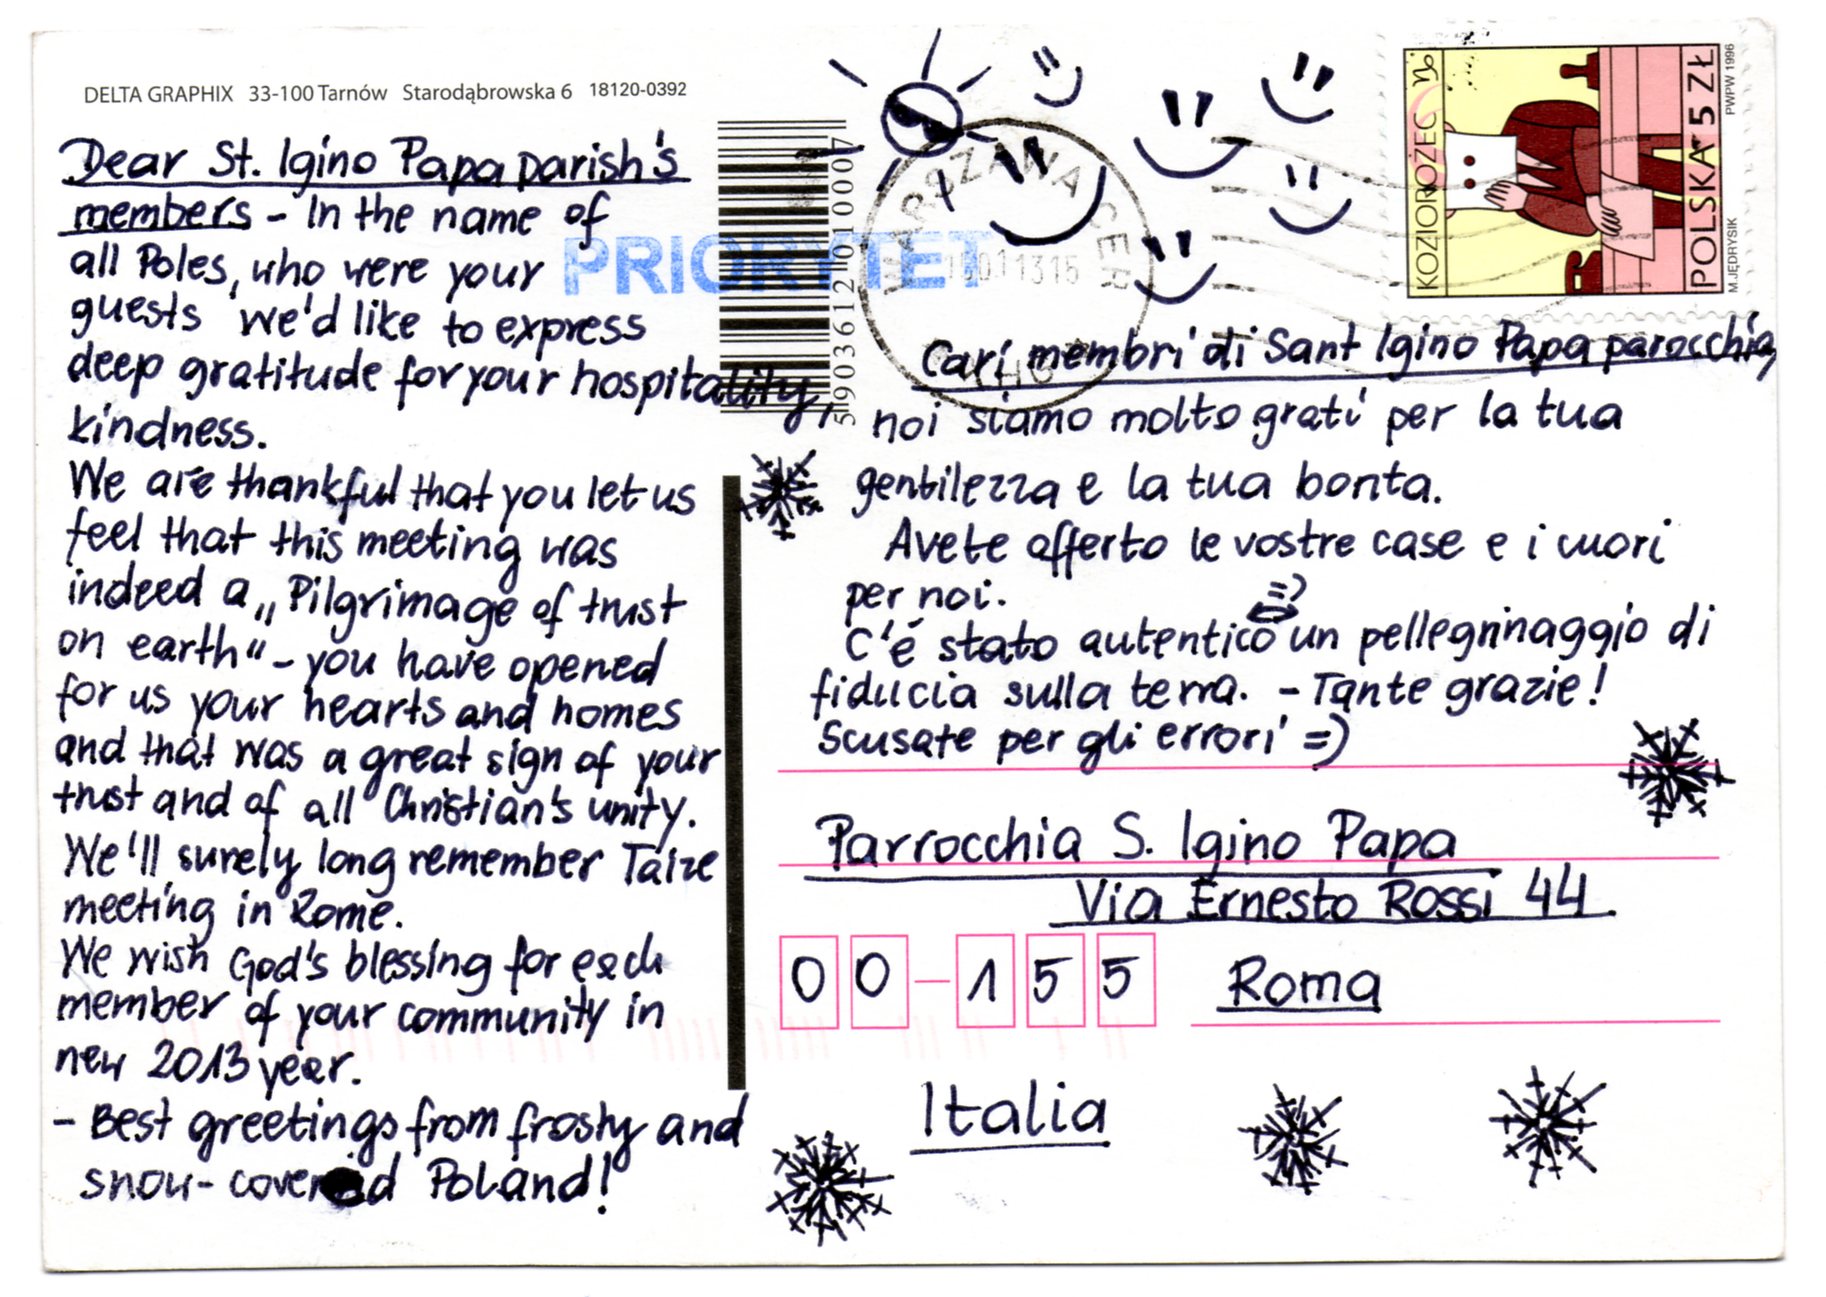 DELTA GRAPHIX 33-100 Tarnów Starodąbrowska 6 18120-0392
Dear St. Igino Papa parish's
members - In the name of
all Poles, who were your
guests we'd like to express
deep gratitude for your hospitality,
kindness.
We are thankful that you let us
feel that this meeting was
indeed a „Pilgrimage of trust
on earth" - you have opened
for us your hearts and homes
and that was a great sign of your
trust and of all Christian's unity.
We'll surely long remember Taize
meeting in Rome.
We wish God's blessing for each
member of your community in
new 2013 year.
- Best greetings from frosty and
snow-covered Poland!
PRIORYTET
5903612010007
WARSZAWA CER
KOZIOROŻEC
POLSKA 5 ZŁ
M.JĘDRYSIK
PWPW 1996
Cari membri di Sant Igino Papa parocchia,
noi siamo molto grati per la tua
gentilezza e la tua bonta.
Avete offerto le vostre case e i cuori
per noi.
=)
C'é stato autentico un pellegrinaggio di
fiducia sulla terra. - Tante grazie!
Scusate per gli errori =)
Parrocchia S. Igino Papa
Via Ernesto Rossi 44.
00-155 Roma
Italia